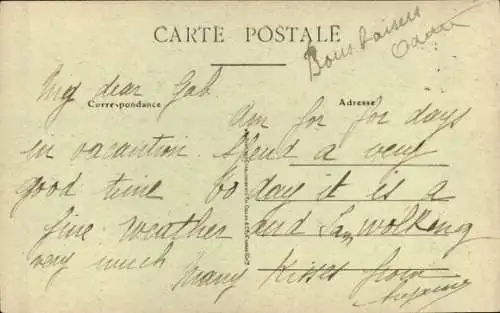 CARTE POSTALE
Bons baisers
Correspondance
Adresse
My dear Gab
Am for for days
in vacantion. Spend a very
good time to day it is a
fine weather and I am wolking
very much
Many Kisses from